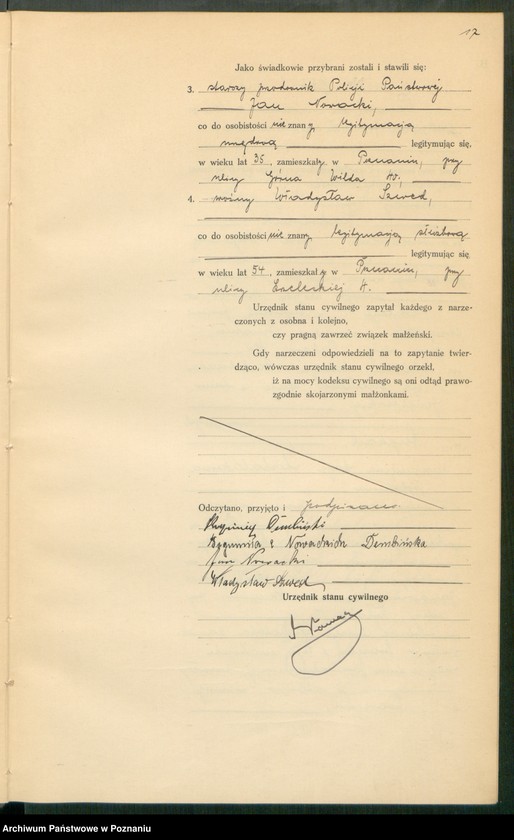 17
Jako świadkowie przybrani zostali i stawili się:
3. starszy przodownik Policji Państwowej
Jan Nowacki,
co do osobistości nie znany, legitymacją
urzędową legitymując się,
w wieku lat 35, zamieszkały w Poznaniu, przy
ulicy Górna Wilda 40,
4. woźny Władysław Szwed,
co do osobistości nie znany, legitymacją służbową
legitymując się,
w wieku lat 54, zamieszkały w Poznaniu, przy
ulicy
Urzędnik stanu cywilnego zapytał każdego z narze-
czonych z osobna i kolejno,
czy pragną zawrzeć związek małżeński.
Gdy narzeczeni odpowiedzieli na to zapytanie twier-
dząco, wówczas urzędnik stanu cywilnego orzekł,
iż na mocy kodeksu cywilnego są oni odtąd prawo-
zgodnie skojarzonymi małżonkami.
Odczytano, przyjęto i podpisano.
Dembiński
z Nowackich Dembińska
Jan Nowacki
Władysław Szwed
Urzędnik stanu cywilnego
Archiwum Państwowe w Poznaniu